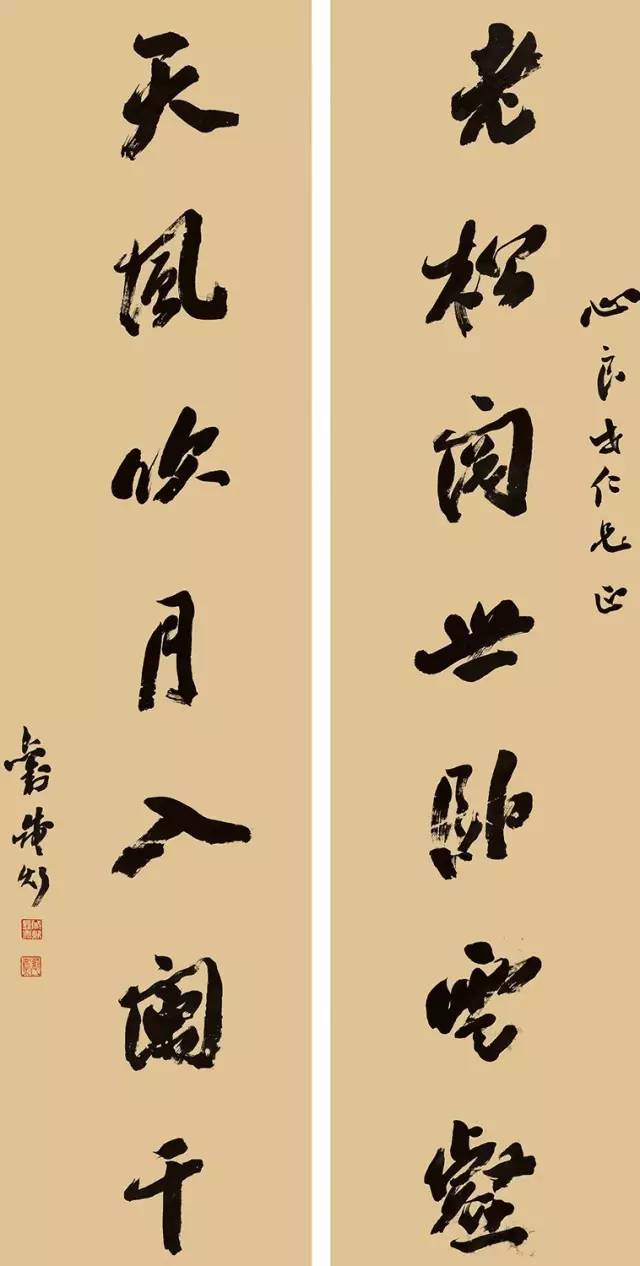 心良仁兄正
老松閱世臥雲壑
天風吹月入闌干